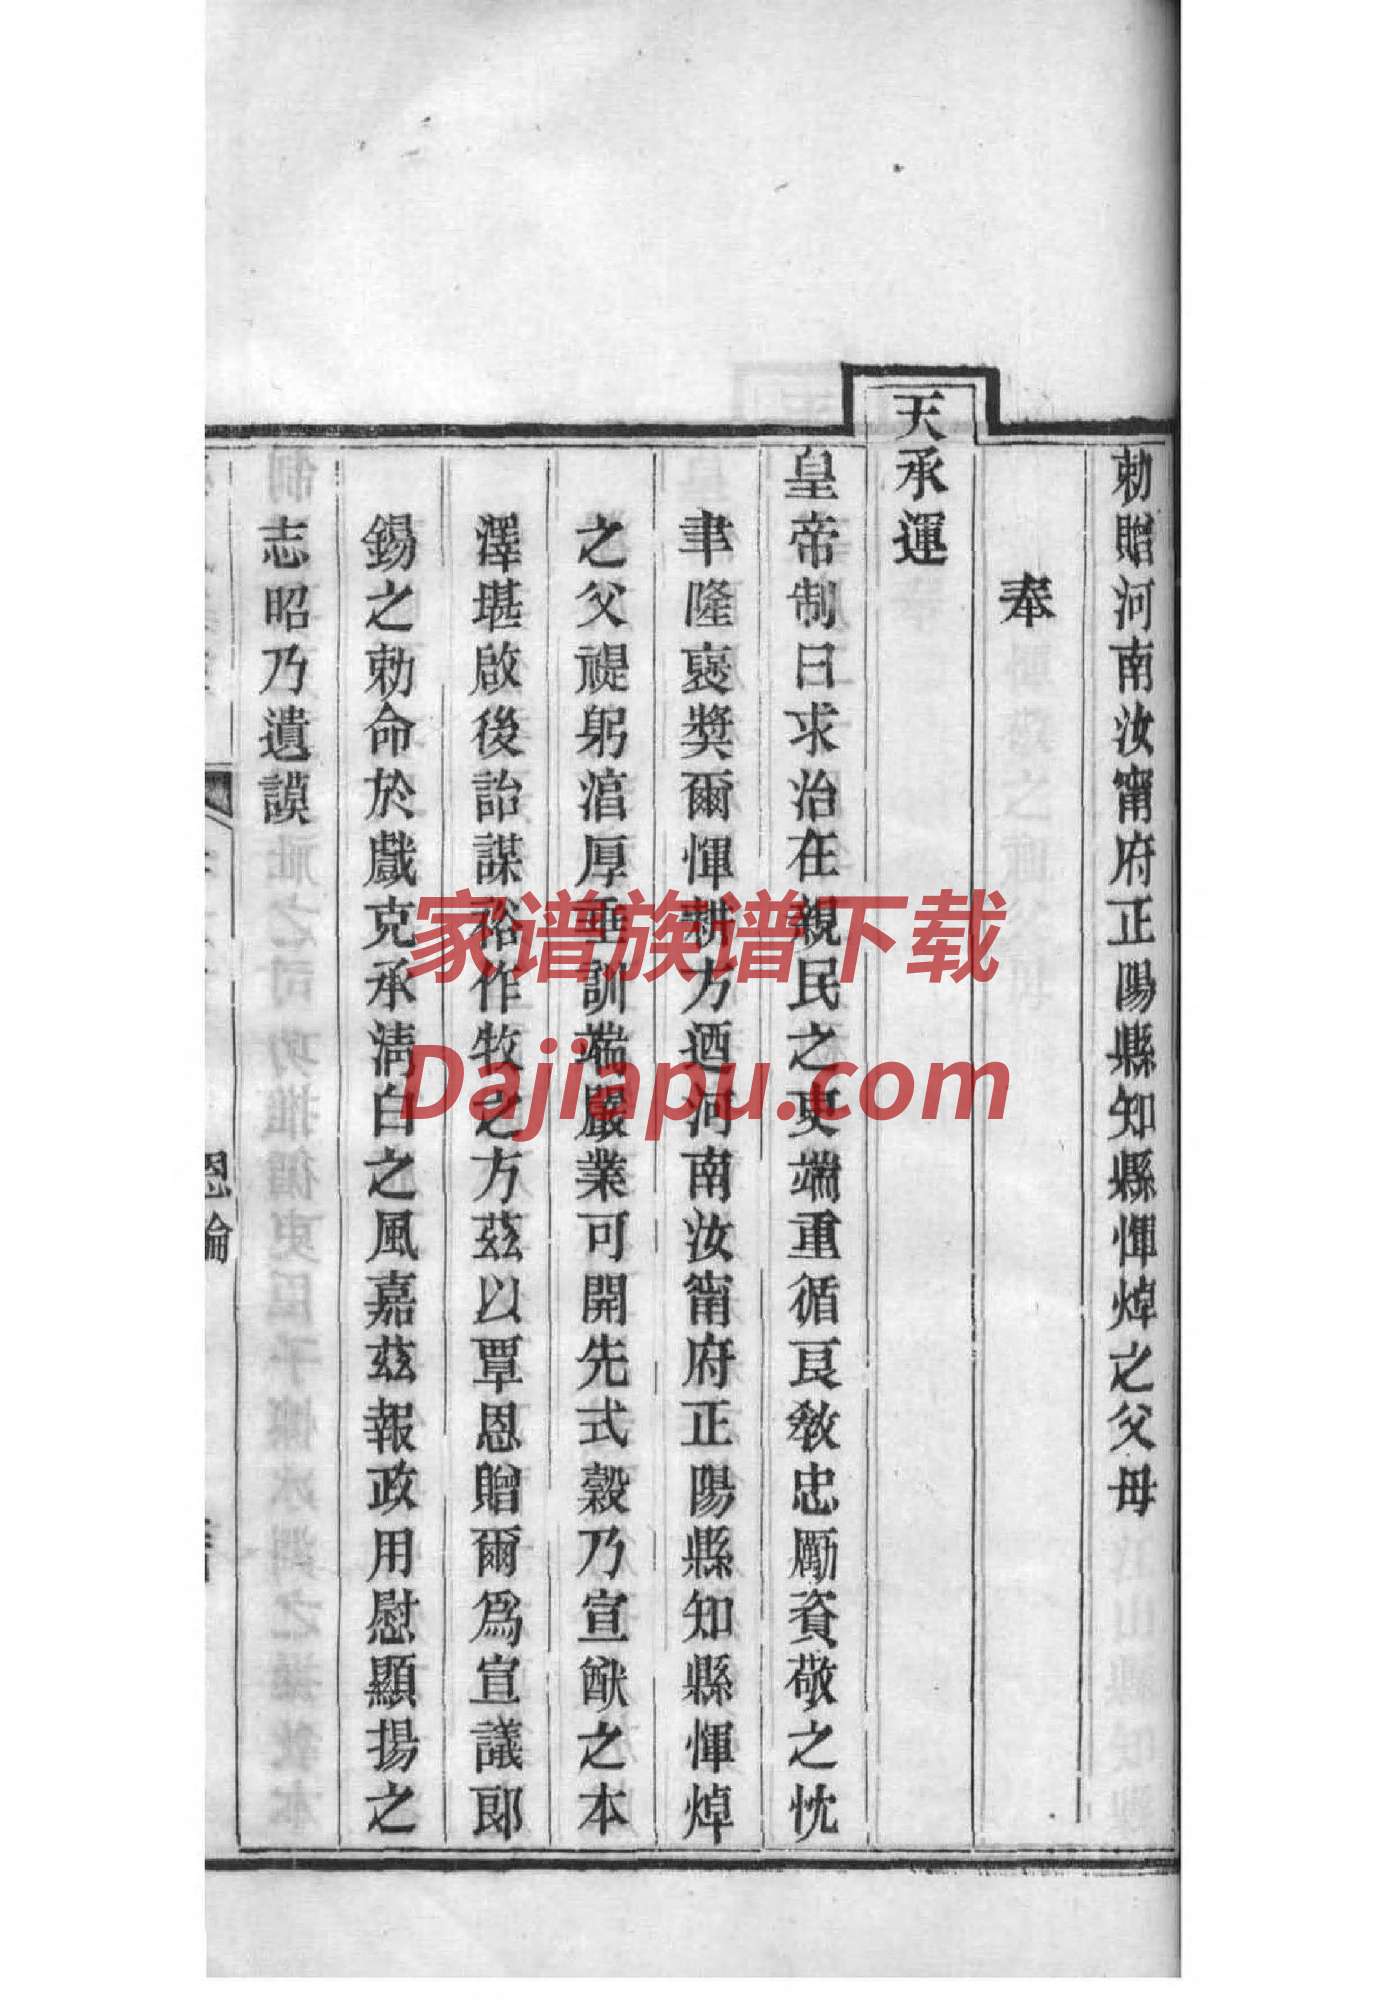 勅贈河南汝甯府正陽縣知縣惲焯之父母
奉
天承運
皇帝制曰求治在親民之吏端重循良敎忠勵資敬之忱
聿隆褒獎爾惲耕方迺河南汝甯府正陽縣知縣惲焯
之父禔躬湻厚垂訓端嚴業可開先式穀乃宣猷之本
澤堪啟後詒謀裕作牧之方茲以覃恩贈爾爲宣議郎
錫之勅命於戲克承淸白之風嘉茲報政用慰顯揚之
志昭乃遺謨
恩綸
家谱族谱下载
Dajiapu.com